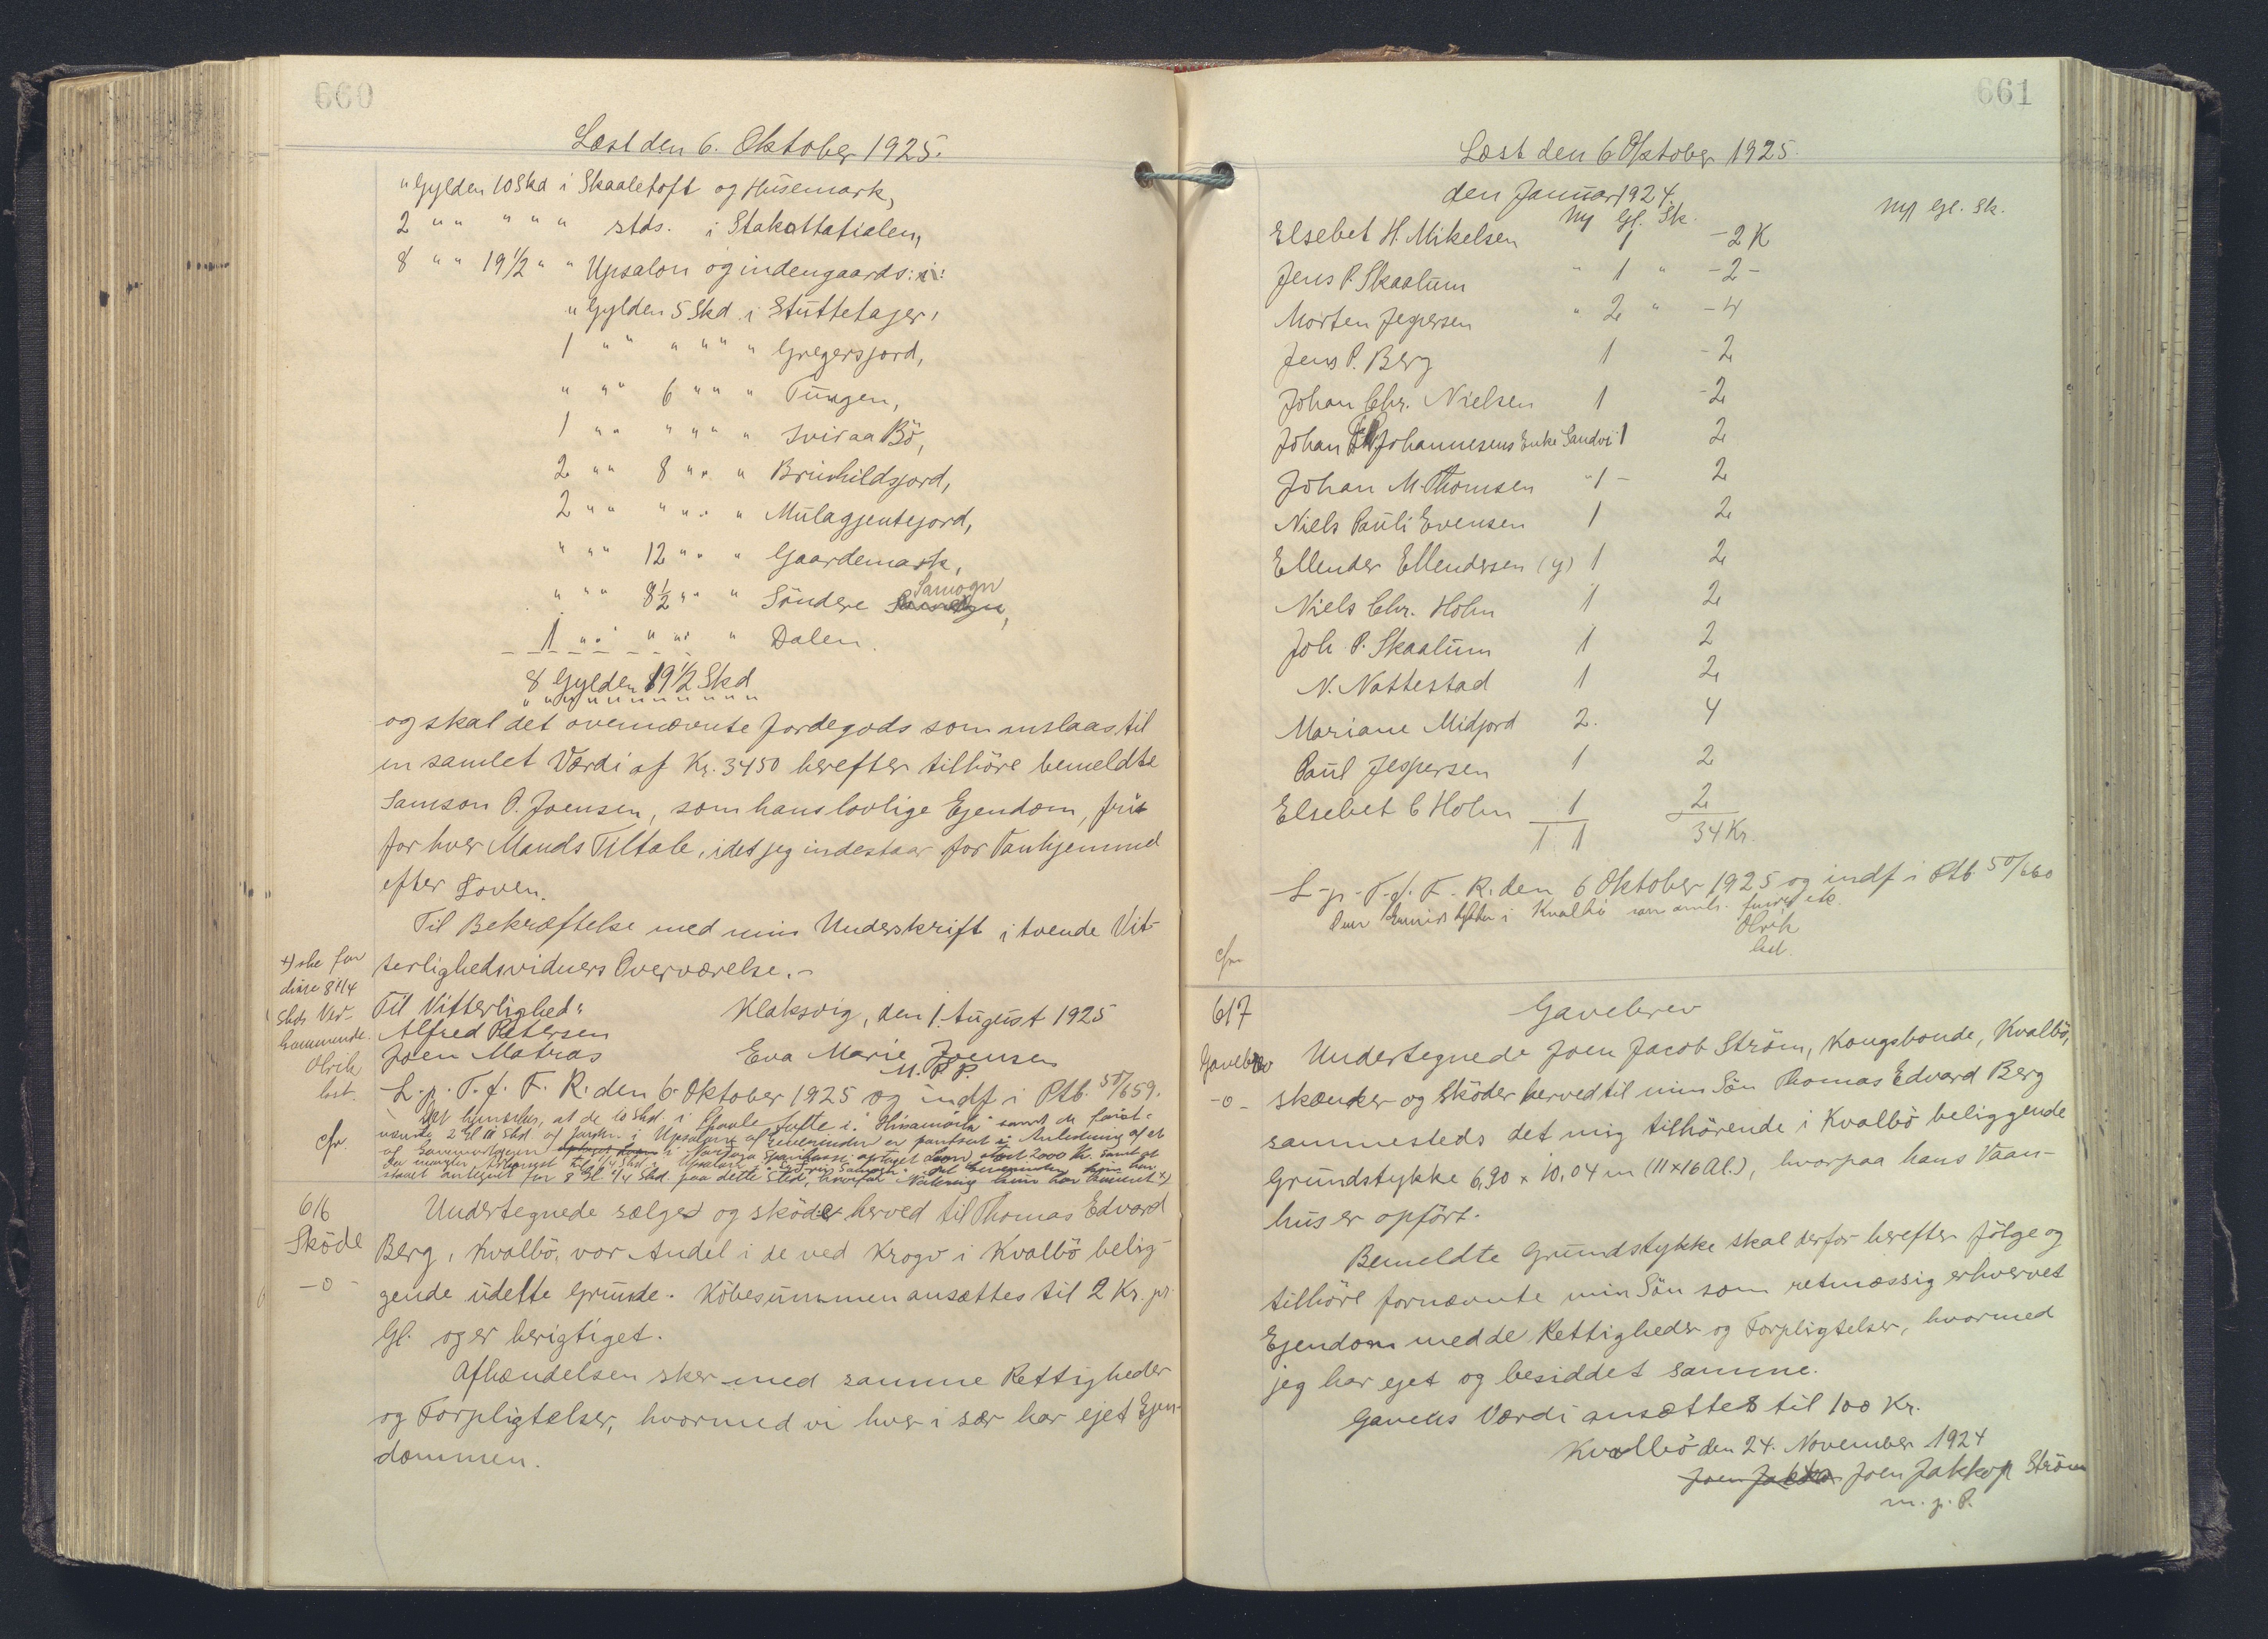 660
Læst den 6. Oktober 1925.
" Gylden 10 Skd i Skaaletoft og Husemark,
2 " " " " " stds. i Stakattatialen,
8 " " 19 1/2 " " Upsalon og indengaards: i:
" Gylden 5 Skd i Stuttetajer,
1 " " " " " " Gregersjord,
" " " 6 " " " Tungen,
1 " " " " " " Sviraa Bö,
2 " " 8 " " " Brunhildsjord,
2 " " " " " " Mulagjentejord,
" " " 12 " " " Gaardemark,
" " " 8 1/2 " " " Söndere Samogn,
1 " " " " " " Dalen.
8 Gylden 19 1/2 Skd
og skal det ovennævnte Jordegods som anslaas til
en samlet Værdi af Kr. 3450 herefter tilhöre bemeldte
Samson P. Joensen, som hans lovlige Ejendom, frit
for hver Mands Tiltale, idet jeg indestaar for Vanhjemmel
efter Loven.
Til Bekræftelse med min Underskrift i tvende Vit-
terlighedsvidners Overværelse.-
Til Vitterlighed: Klaksvig, den 1. August 1925
Alfred Petersen
Joen Matras Eva Marie Joensen
M. P. P.
L. p. T. f. F. R. den 6. Oktober 1925 og indf i Ptb. 50/659.
Det bemærkes, at de 10 Skd. i Skaale Tufte i. Husamörk samt de först-
nævnte 2 Gl Skd af Jorden i Upsalon af
i Anledning af et
Sparikasse optaget Laan stort 2000 Kr. Samt at
for 8 Gl. Skd. paa dette Sted,
+) ske for
disse 8 1/4
Skds Ved-
kommende.
Olrik
cst.
cfr.
616
Sköde
-o-
Undertegnede sælger og sköder herved til Thomas Edvard
Berg, Kvalbö, vor Andel i de ved Krogv i Kvalbö belig-
gende udelte Grunde. Köbesummen ansættes til 2 Kr. pr.
Gl. og er berigtiget.
Afhændelsen sker med samme Rettigheder
og Forpligtelser, hvormed vi hver i sær har ejet Ejen-
dommen.
661
Læst den 6 Oktober 1925.
den Januar 1924.
My Gl. Sk. My Gl. Sk.
Elsebet H. Mikelsen 1 - 2 K
Jens P. Skaalum " 1 " - 2 -
Morten Jespersen " 2 " - 4
Jens P. Berg 1 - 2
Johan Chr. Nielsen 1 - 2
Johan Fr. Johannesens Enke Sandvi 1 2
Johan M. Thomsen " 1 - 2
Niels Pauli Evensen 1 2
Ellender Ellendersen (y) 1 2
Niels Chr. Holm 1 2
Joh P. Skaalum 1 2
N. Nattestad 1 2
Mariane Midjord 2. 4
Paul Jespersen 1 2
Elsebet C Holm 1 2
1 1 34 Kr.
L. p. T. f. F. R. den 6 Oktober 1925 og indf i Ptb 50/660
i Kvalbö
Olrik
cst.
cfr
617
Gavebrev
-o-
Gavebrev
Undertegnede Joen Jacob Ström, Kongsbonde, Kvalbö,
skænker og sköder herved til min Sön Thomas Edvard Berg
sammesteds det mig tilhörende i Kvalbö beliggende
Grundstykke 6,90 x 10,04 m (11 x 16 Al.), hvorpaa hans Vaan-
hus er opfört.
Bemeldte Grundstykke skal derfor herefter fölge og
tilhöre fornævnte min Sön som retmæssig erhvervet
Ejendom med de Rettigheder og Forpligtelser, hvormed
jeg har ejet og besiddet samme.
Gavens Værdi ansættes til 100 Kr.
Kvalbö den 24. November 1924
Joen Jakko Joen Jakkop Ström
m. p. P.